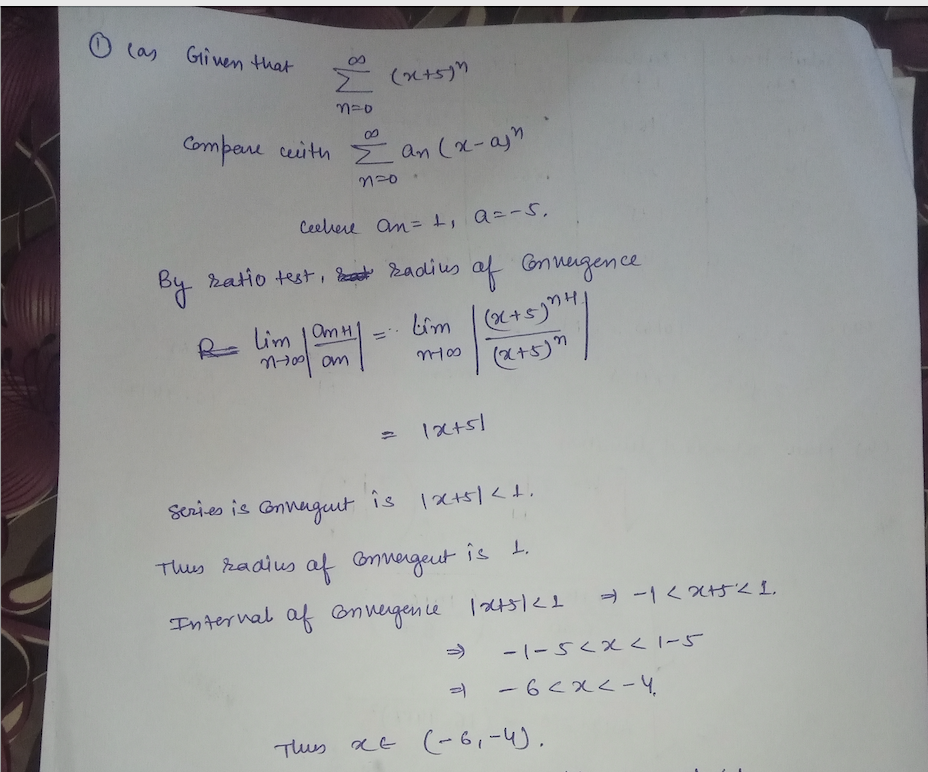 ① (a) Given that ∑_{n=0}^{∞} (x+5)^n
Compare with ∑_{n=0}^{∞} an (x-a)^n
where an = 1, a = -5.
By ratio test, radius of Convergence
lim_{n→∞} |an+1 / an| = lim_{n→∞} |(x+5)^{n+1} / (x+5)^n|
= |x+5|
Series is Convergent is |x+5| < 1.
Thus radius of Convergent is 1.
Interval of Convergence |x+5| < 1 ⇒ -1 < x+5 < 1.
⇒ -1-5 < x < 1-5
⇒ -6 < x < -4.
Thus x ∈ (-6, -4).